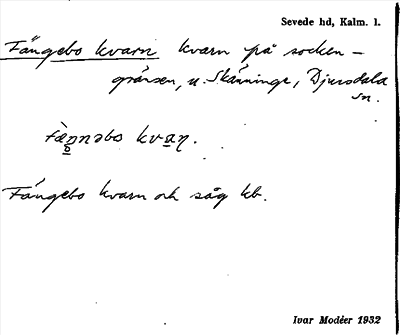 Sevede hd, Kalm. l.
Fångebo kvarn kvarn på socken-
gränsen, u. Skänninge, Djursdala
sn.
fæ̀nnəbo kvan.
Fångebo kvarn och såg kb.
Ivar Modéer 1932